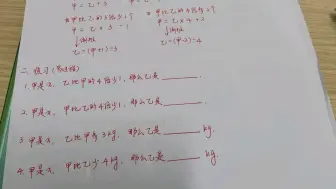 甲比乙的3倍少1个 甲比乙的4倍多3个
甲=乙×3-1 甲=乙×4+3
↓逆推 ↓逆推
乙=(甲+1)÷3 乙=(甲-3)÷4
二. 练习(写过程)
1. 甲是x, 乙比甲的4倍少1, 那么乙是______.
2. 甲是x, 甲比乙的4倍少1, 那么乙是______.
3. 甲是x, 乙比甲多3kg, 那么乙是______kg.
4. 甲是x, 甲比乙少4kg, 那么乙是______kg.